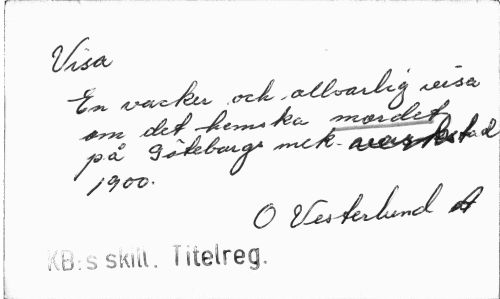 Visa
En vacker och allvarlig visa
om det hemska mordet
på Göteborgs mek. verkstad
1900.
O Vesterlund
KB:s skill. Titelreg.